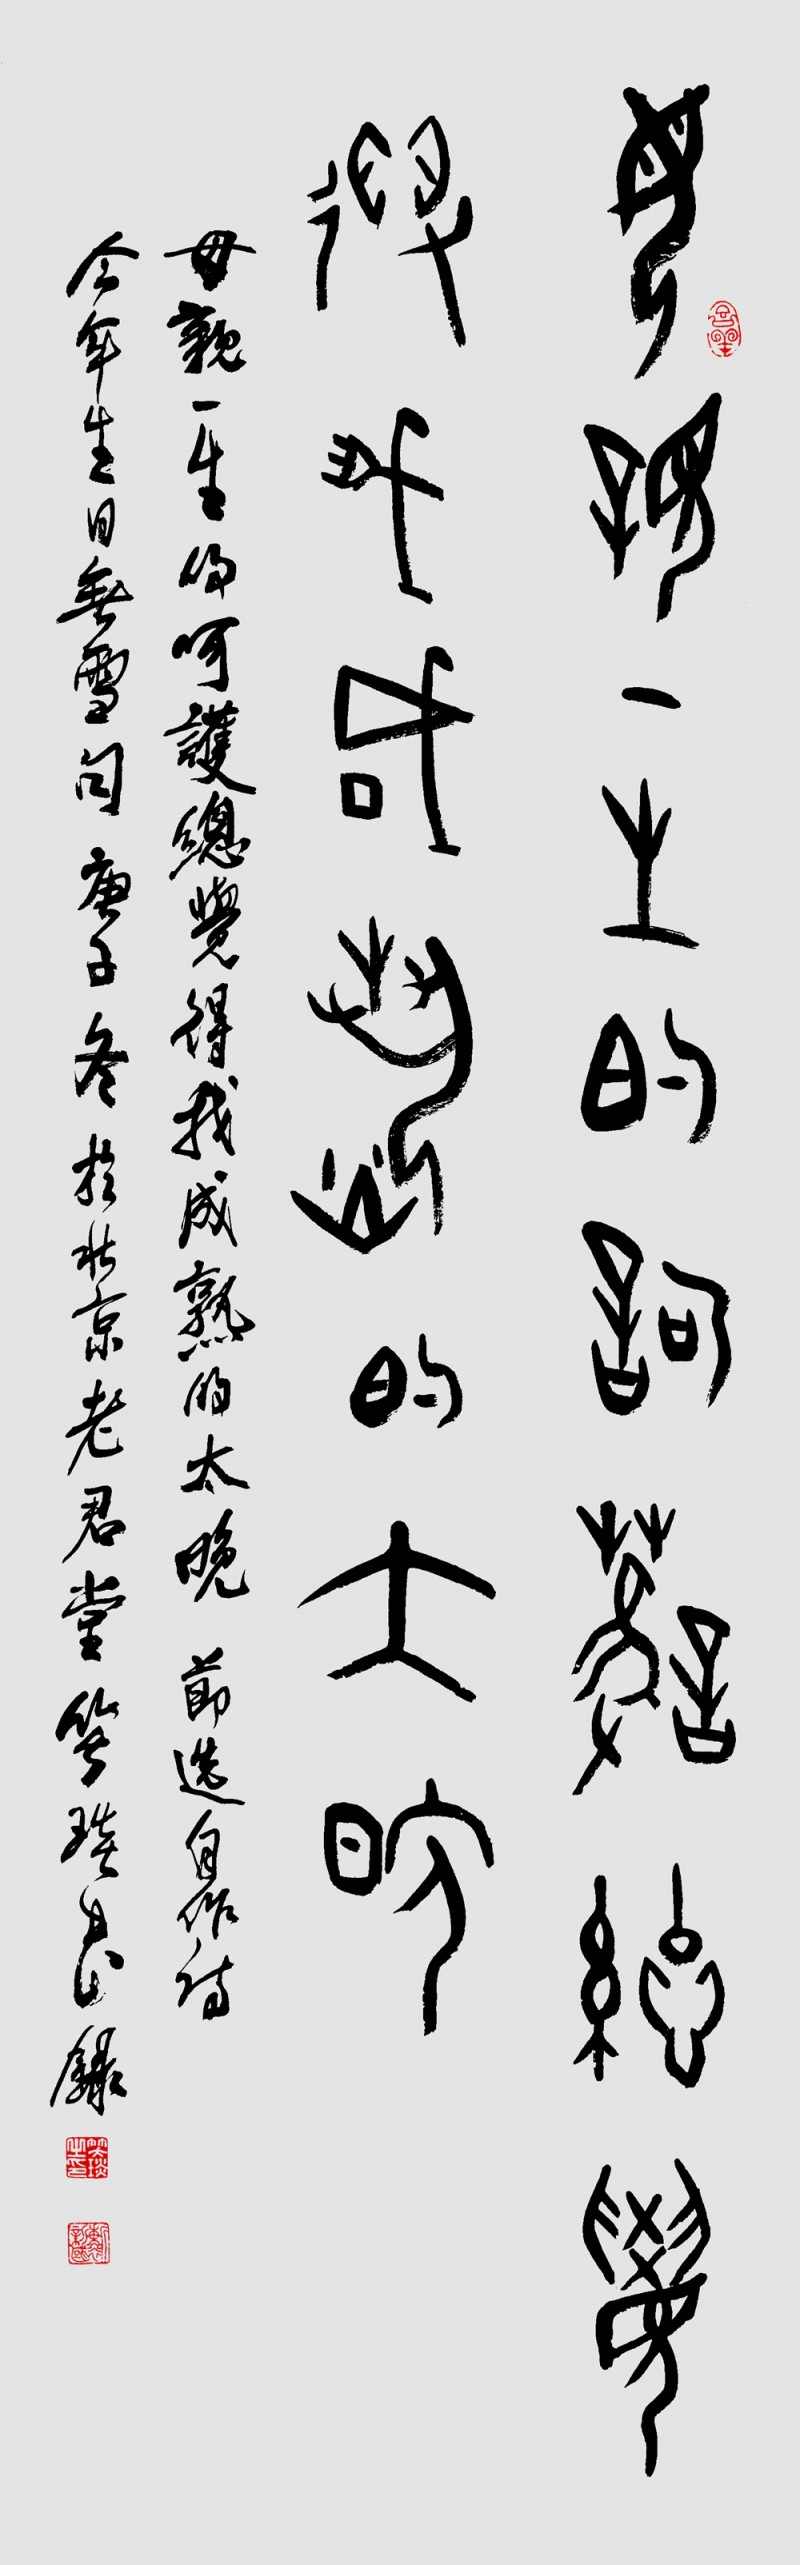 母親一生的訶護總覺
得我成熟的太晚
母親一生的呵護總覺得我成熟的太晚 節選自作詩
今年生日無雪句 庚子冬於北京老君堂 笑琰 錄